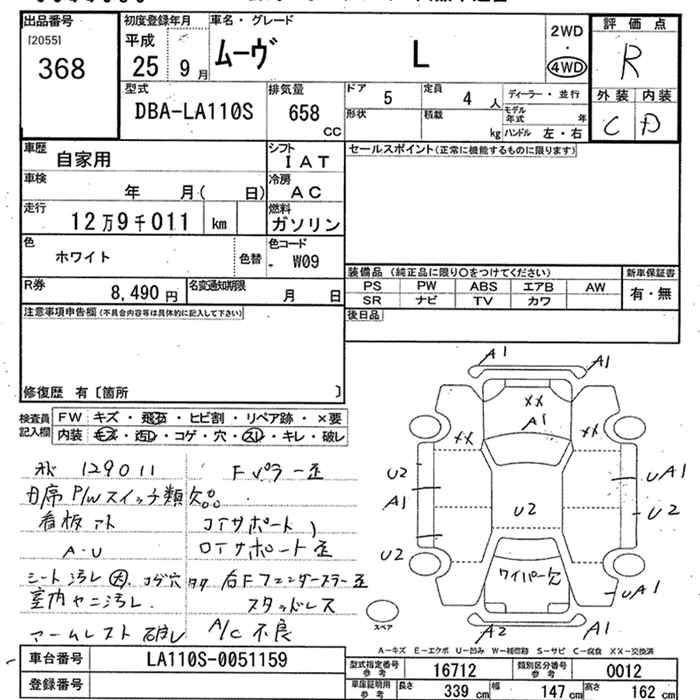 出品番号
[2055]
368
初度登録年月
平成
25 9月
車名・グレード
ムーヴ L
2WD
・
4WD
評価点
R
外装 内装
C D
型式
DBA-LA110S
排気量
658
CC
ドア 5
定員 4人
ディーラー・並行
形状
積載 kg
モデル年式 年
ハンドル 左・右
車歴
自家用
シフト
IAT
車検
年 月( 日)
冷房
AC
走行
12万9千011 km
燃料
ガソリン
色
ホワイト
色替
色コード
W09
R券
8,490円
名変通知期限
月 日
セールスポイント(正常に機能するものに限ります)
装備品 (純正品に限り○をつけてください)
新車保証書
PS PW ABS エアB AW
SR ナビ TV カワ
有・無
後日品
注意事項申告欄(不具合内容等は具体的に記入して下さい)
修復歴 有〔箇所 〕
検査員記入欄
FW キズ・飛石・ヒビ割・リペア跡・×要
内装 キズ・汚レ・コゲ・穴・スレ・キレ・破レ
129011
P/Wスイッチ類欠
看板アト
A・U
シート汚レ 大、コゲ穴
室内ヤニ汚レ
アームレスト 破レ
Fパラー歪
コアサポート
ロアサポート歪
右Fフェンダーステー歪
スタッドレス
A/C 不良
A1
A1
XX
A1
XX
XX
U2
UA1
A1
U2
U2
U2
UA1
ワイパー欠
A2
A1
スペア
A-キズ E-エクボ U-凹み W-補修跡 S-サビ C-腐食 XX-交換済
車台番号
LA110S-0051159
登録番号
型式指定番号
参考
16712
類別区分番号
参考
0012
車庫証明用
参考
長さ 339cm
幅 147cm
高さ 162cm